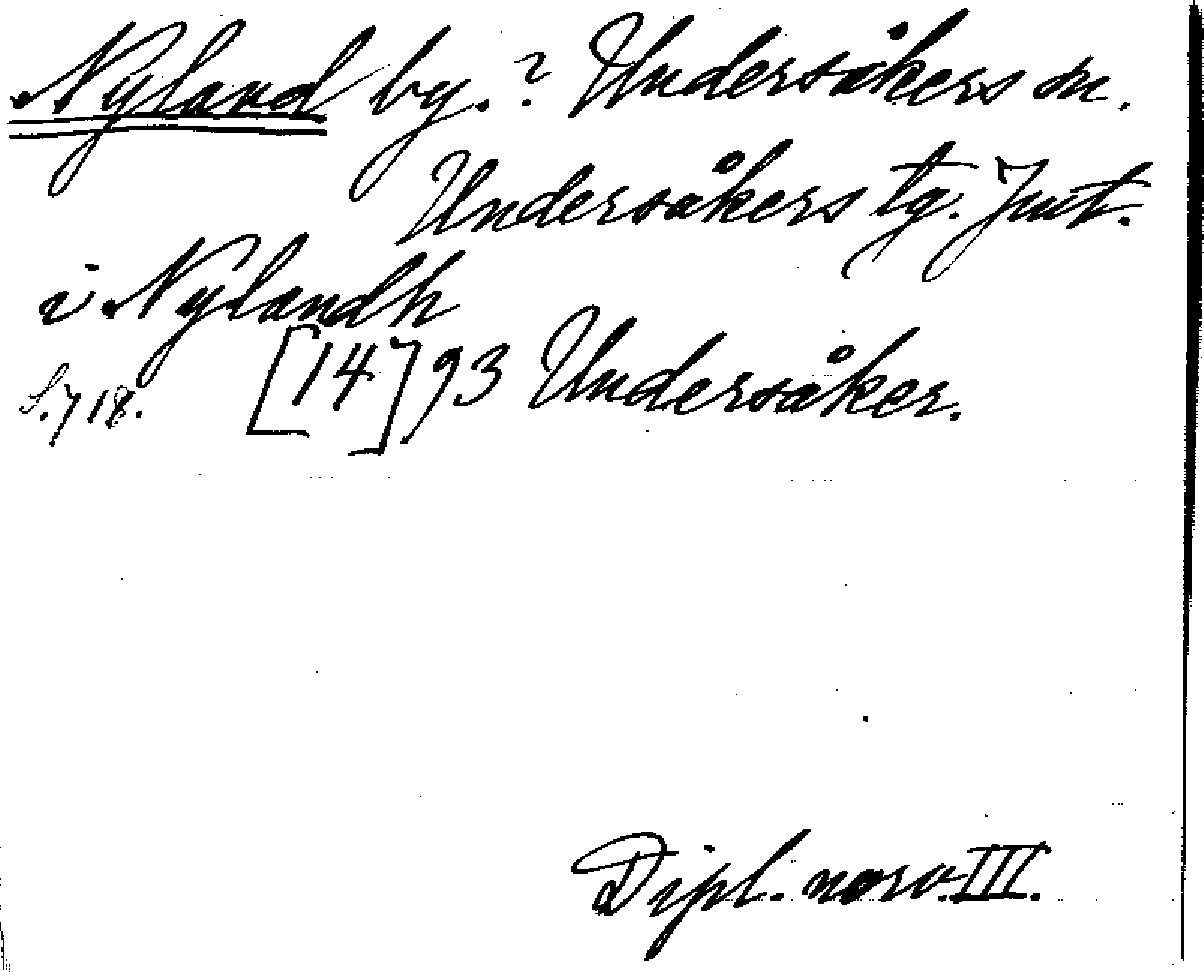 Nyland by.? Undersåkers sn.
Undersåkers tg. Jmt.
i Nylandh
S. 718. [14]93 Undersåker.
Dipl. norv. III.